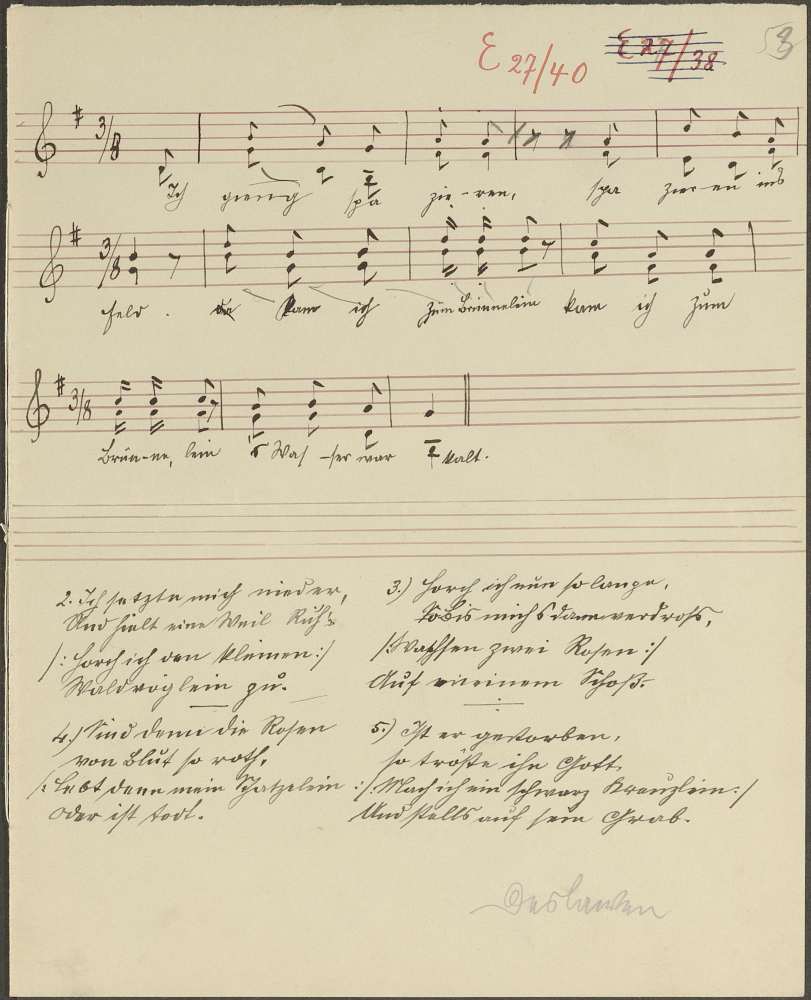 E 27/40 E 27/38 3
3/8
Ich gieng spa zie-ren, spa zier-en ins
3/8
Feld. da kam ich zum Brünnelein kam ich zum
3/8
Brün-ne, lein 's Was-ser war kalt.
2. Ich setzte mich nieder,
Und hielt eine Weil Ruh's
/: horch ich den kleinen :/
Waldvöglein zu.
3.) Horch ich nun so lange,
bis mich's dann verdroß,
/: Wachsen zwei Rosen :/
Auf meinem Schoß.
4.) Sind denn die Rosen
von Blut so roth,
/: Lebt denn mein Schatzelein :/
oder ist todt.
5.) Ist er gestorben,
so tröste ihn Gott
/: Mach ich ein schwarz Kreuzlein :/
Und stells auf sein Grab.